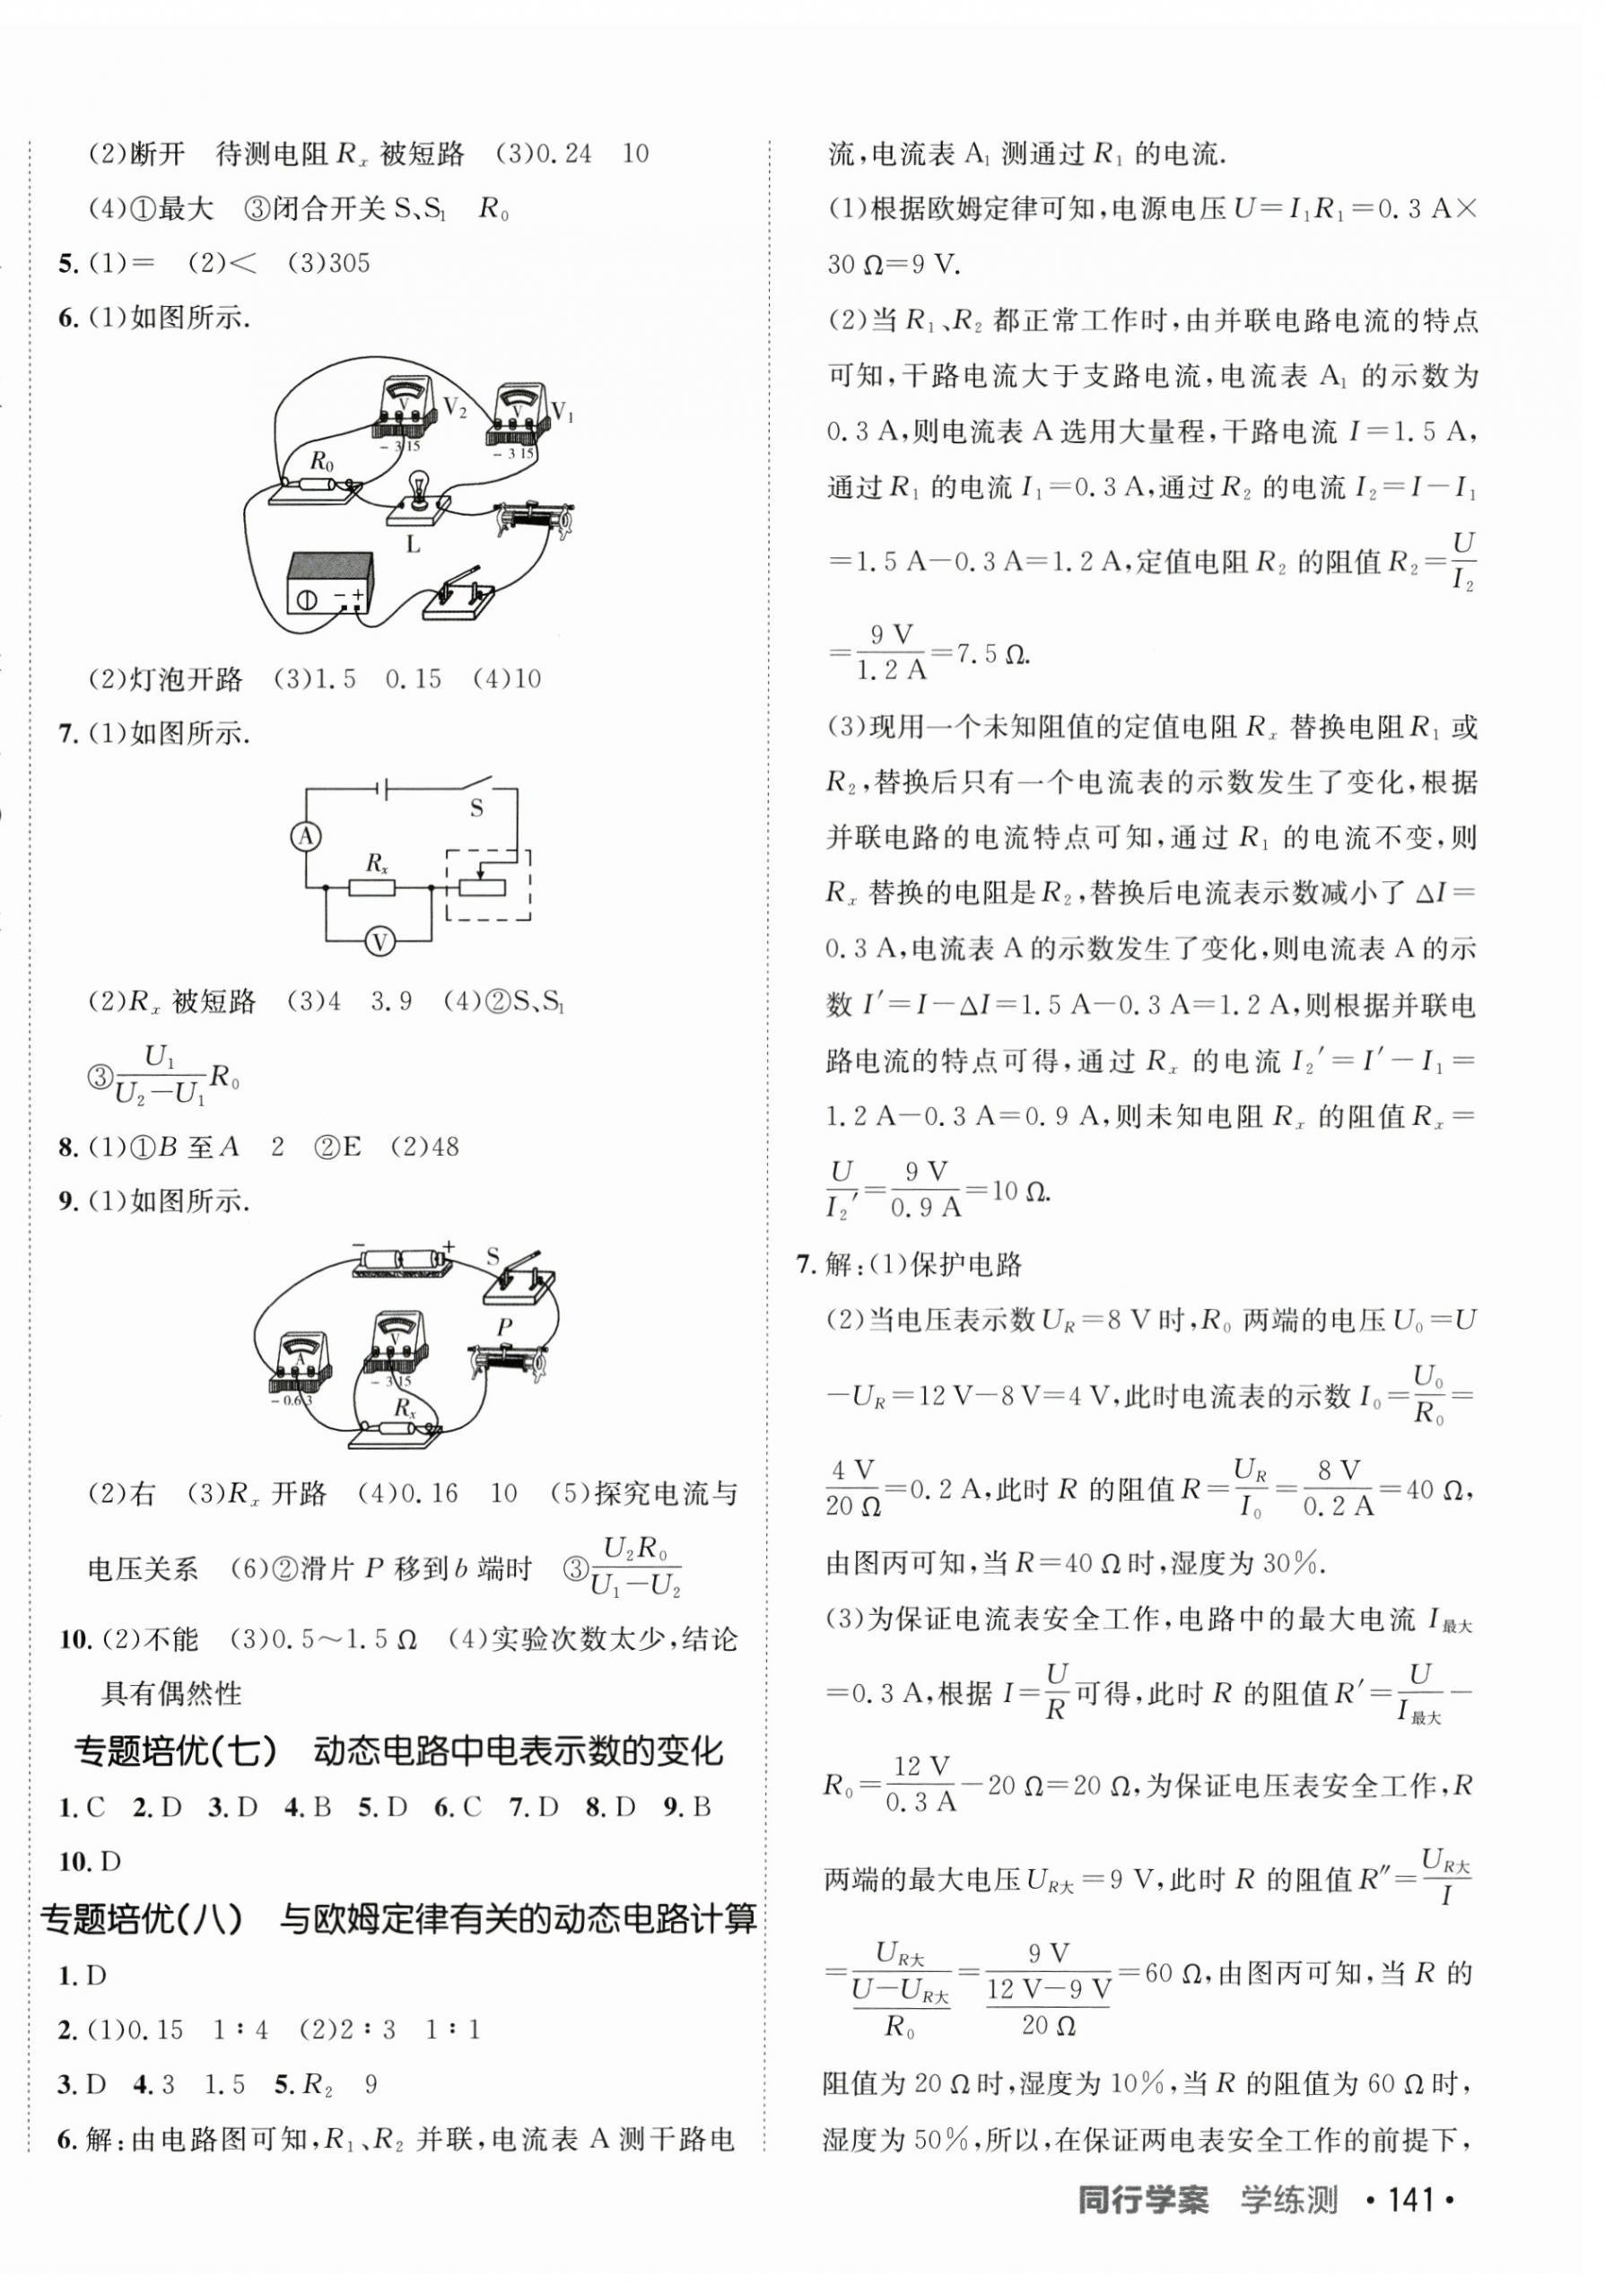 (2)断开 待测电阻 Rₓ 被短路 (3)0.24 10
(4)①最大 ③闭合开关 S、S₁ R₀
5. (1)= (2)< (3)305
6. (1)如图所示.
V₂
V₁
V
V
- 3 15
- 3 15
R₀
L
- +
(2)灯泡开路 (3)1.5 0.15 (4)10
7. (1)如图所示.
S
A
Rₓ
V
(2)Rₓ 被短路 (3)4 3.9 (4)②S、S₁
③U₁/(U₂-U₁) R₀
8. (1)①B 至 A 2 ②E (2)48
9. (1)如图所示.
- +
S
P
V
A
- 3 15
- 0.6 3
Rₓ
(2)右 (3)Rₓ 开路 (4)0.16 10 (5)探究电流与
电压关系 (6)②滑片 P 移到 b 端时 ③U₂R₀/(U₁-U₂)
10. (2)不能 (3)0.5~1.5 Ω (4)实验次数太少,结论
具有偶然性
专题培优(七) 动态电路中电表示数的变化
1. C 2. D 3. D 4. B 5. D 6. C 7. D 8. D 9. B
10. D
专题培优(八) 与欧姆定律有关的动态电路计算
1. D
2. (1)0.15 1∶4 (2)2∶3 1∶1
3. D 4. 3 1.5 5. R₂ 9
6. 解:由电路图可知,R₁、R₂ 并联,电流表 A 测干路电
流,电流表 A₁ 测通过 R₁ 的电流.
(1)根据欧姆定律可知,电源电压 U=I₁R₁=0.3 A×
30 Ω=9 V.
(2)当 R₁、R₂ 都正常工作时,由并联电路电流的特点
可知,干路电流大于支路电流,电流表 A₁ 的示数为
0.3 A,则电流表 A 选用大量程,干路电流 I=1.5 A,
通过 R₁ 的电流 I₁=0.3 A,通过 R₂ 的电流 I₂=I-I₁
=1.5 A-0.3 A=1.2 A,定值电阻 R₂ 的阻值 R₂=U/I₂
=9 V/1.2 A=7.5 Ω.
(3)现用一个未知阻值的定值电阻 Rₓ 替换电阻 R₁ 或
R₂,替换后只有一个电流表的示数发生了变化,根据
并联电路的电流特点可知,通过 R₁ 的电流不变,则
Rₓ 替换的电阻是 R₂,替换后电流表示数减小了 ΔI=
0.3 A,电流表 A 的示数发生了变化,则电流表 A 的示
数 I′=I-ΔI=1.5 A-0.3 A=1.2 A,则根据并联电
路电流的特点可得,通过 Rₓ 的电流 I₂′=I′-I₁=
1.2 A-0.3 A=0.9 A,则未知电阻 Rₓ 的阻值 Rₓ=
U/I₂′=9 V/0.9 A=10 Ω.
7. 解:(1)保护电路
(2)当电压表示数 U_R=8 V 时,R₀ 两端的电压 U₀=U
-U_R=12 V-8 V=4 V,此时电流表的示数 I₀=U₀/R₀=
4 V/20 Ω=0.2 A,此时 R 的阻值 R=U_R/I₀=8 V/0.2 A=40 Ω,
由图丙可知,当 R=40 Ω 时,湿度为 30%.
(3)为保证电流表安全工作,电路中的最大电流 I最大
=0.3 A,根据 I=U/R可得,此时 R 的阻值 R′=U/I最大-
R₀=12 V/0.3 A-20 Ω=20 Ω,为保证电压表安全工作,R
两端的最大电压 U_R大=9 V,此时 R 的阻值 R″=U_R大/I
=U_R大/((U-U_R大)/R₀)=9 V/((12 V-9 V)/20 Ω)=60 Ω,由图丙可知,当 R 的
阻值为 20 Ω 时,湿度为 10%,当 R 的阻值为 60 Ω 时,
湿度为 50%,所以,在保证两电表安全工作的前提下,
同行学案 学练测 ·141·